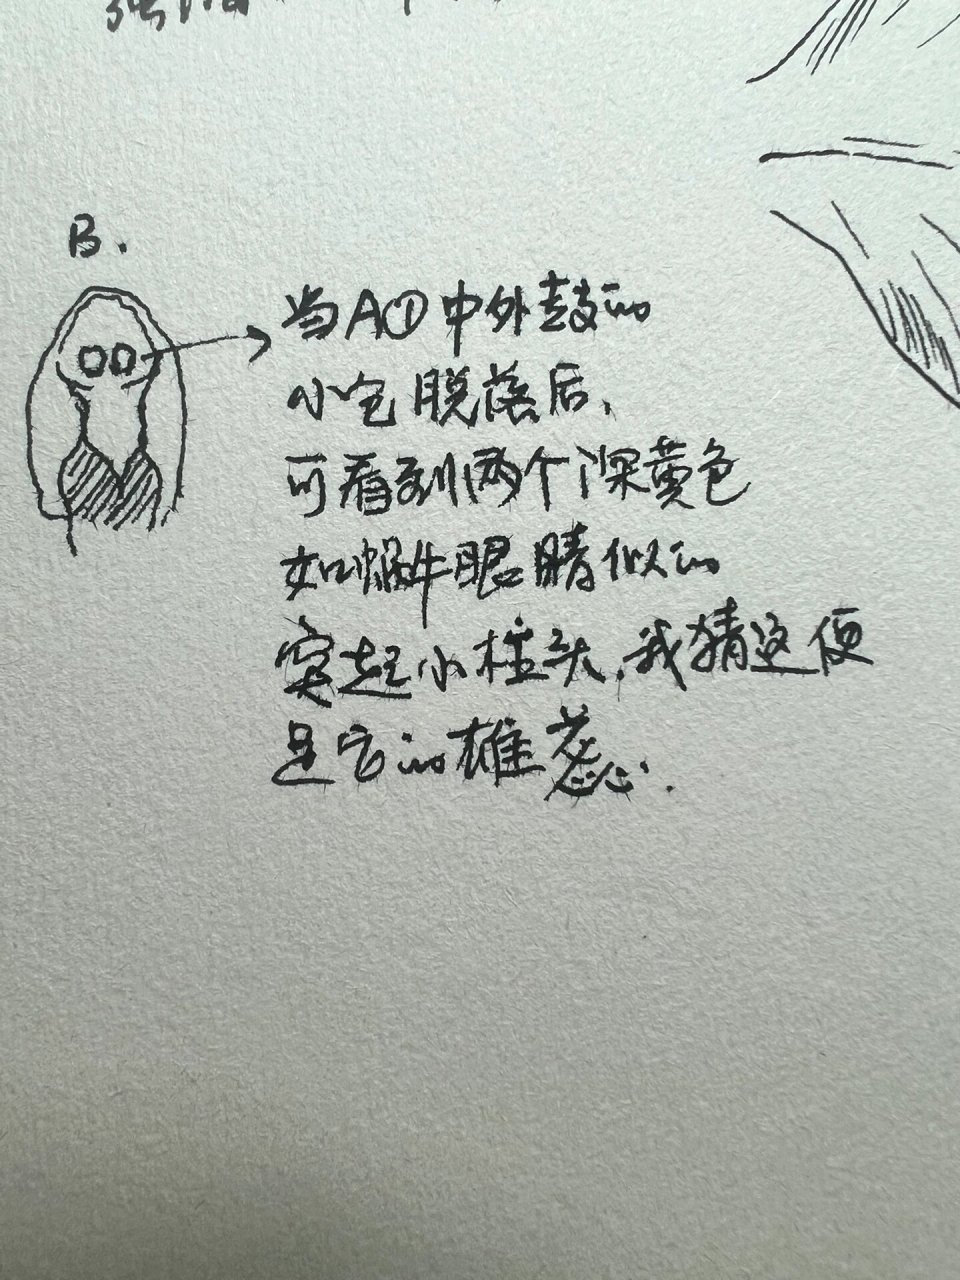 B.
当A①中外鼓的
小包脱落后,
可看到两个深黄色
如蜗牛眼睛似的
突起小柱头,我猜这便
是它的雄蕊.